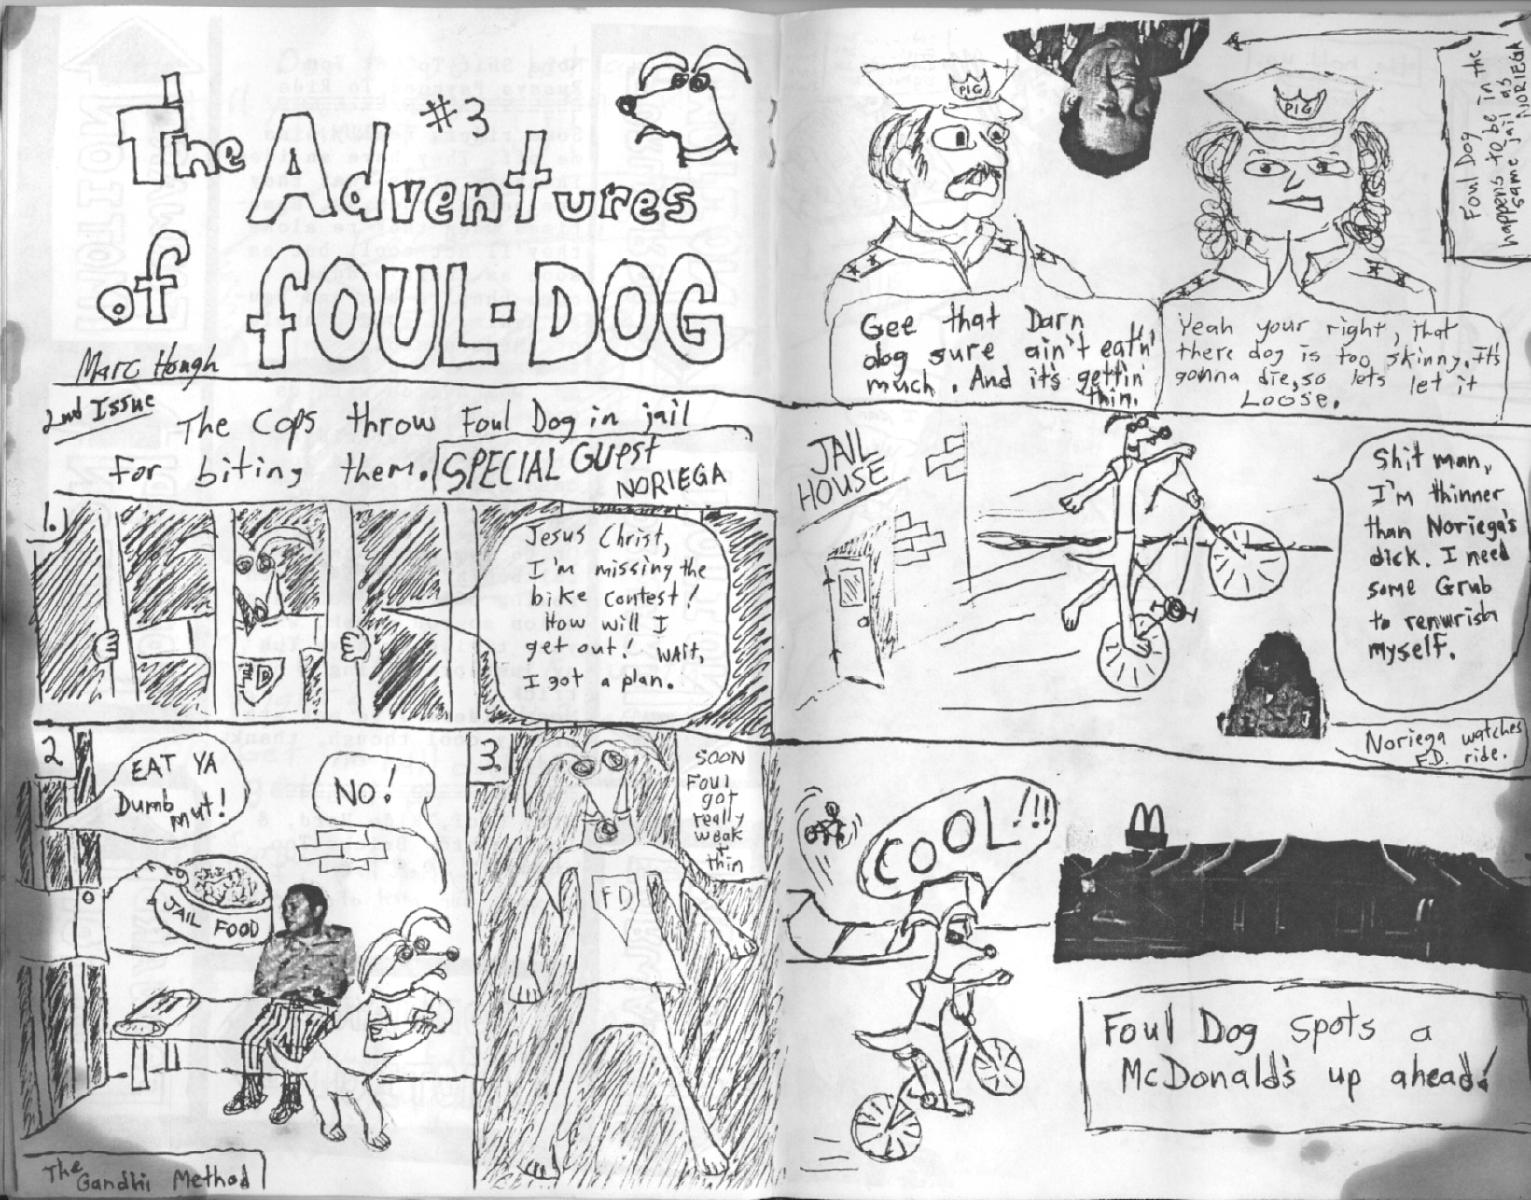 #3
The Adventures
of FOUL-DOG
Marc Hough
2nd Issue
The Cops throw Foul Dog in jail
for biting them.
SPECIAL GUEST
NORIEGA
1.
Jesus Christ,
I'm missing the
bike contest!
How will I
get out! wait,
I got a plan.
2
EAT YA
Dumb
mut!
NO!
JAIL FOOD
The
Gandhi Method
3.
SOON
Foul
got
really
weak
+
thin
FD
PIG
PIG
Foul Dog
happens to be in the
same jail as
NORIEGA
Gee that Darn
dog sure ain't eatn'
much. And it's gettin'
thin.
Yeah your right, that
there dog is too skinny. It's
gonna die, so lets let it
Loose.
JAIL
HOUSE
Shit man,
I'm thinner
than Noriega's
dick. I need
some Grub
to renurish
myself.
Noriega watches
F.D. ride.
COOL!!!
Foul Dog spots a
McDonald's up ahead!